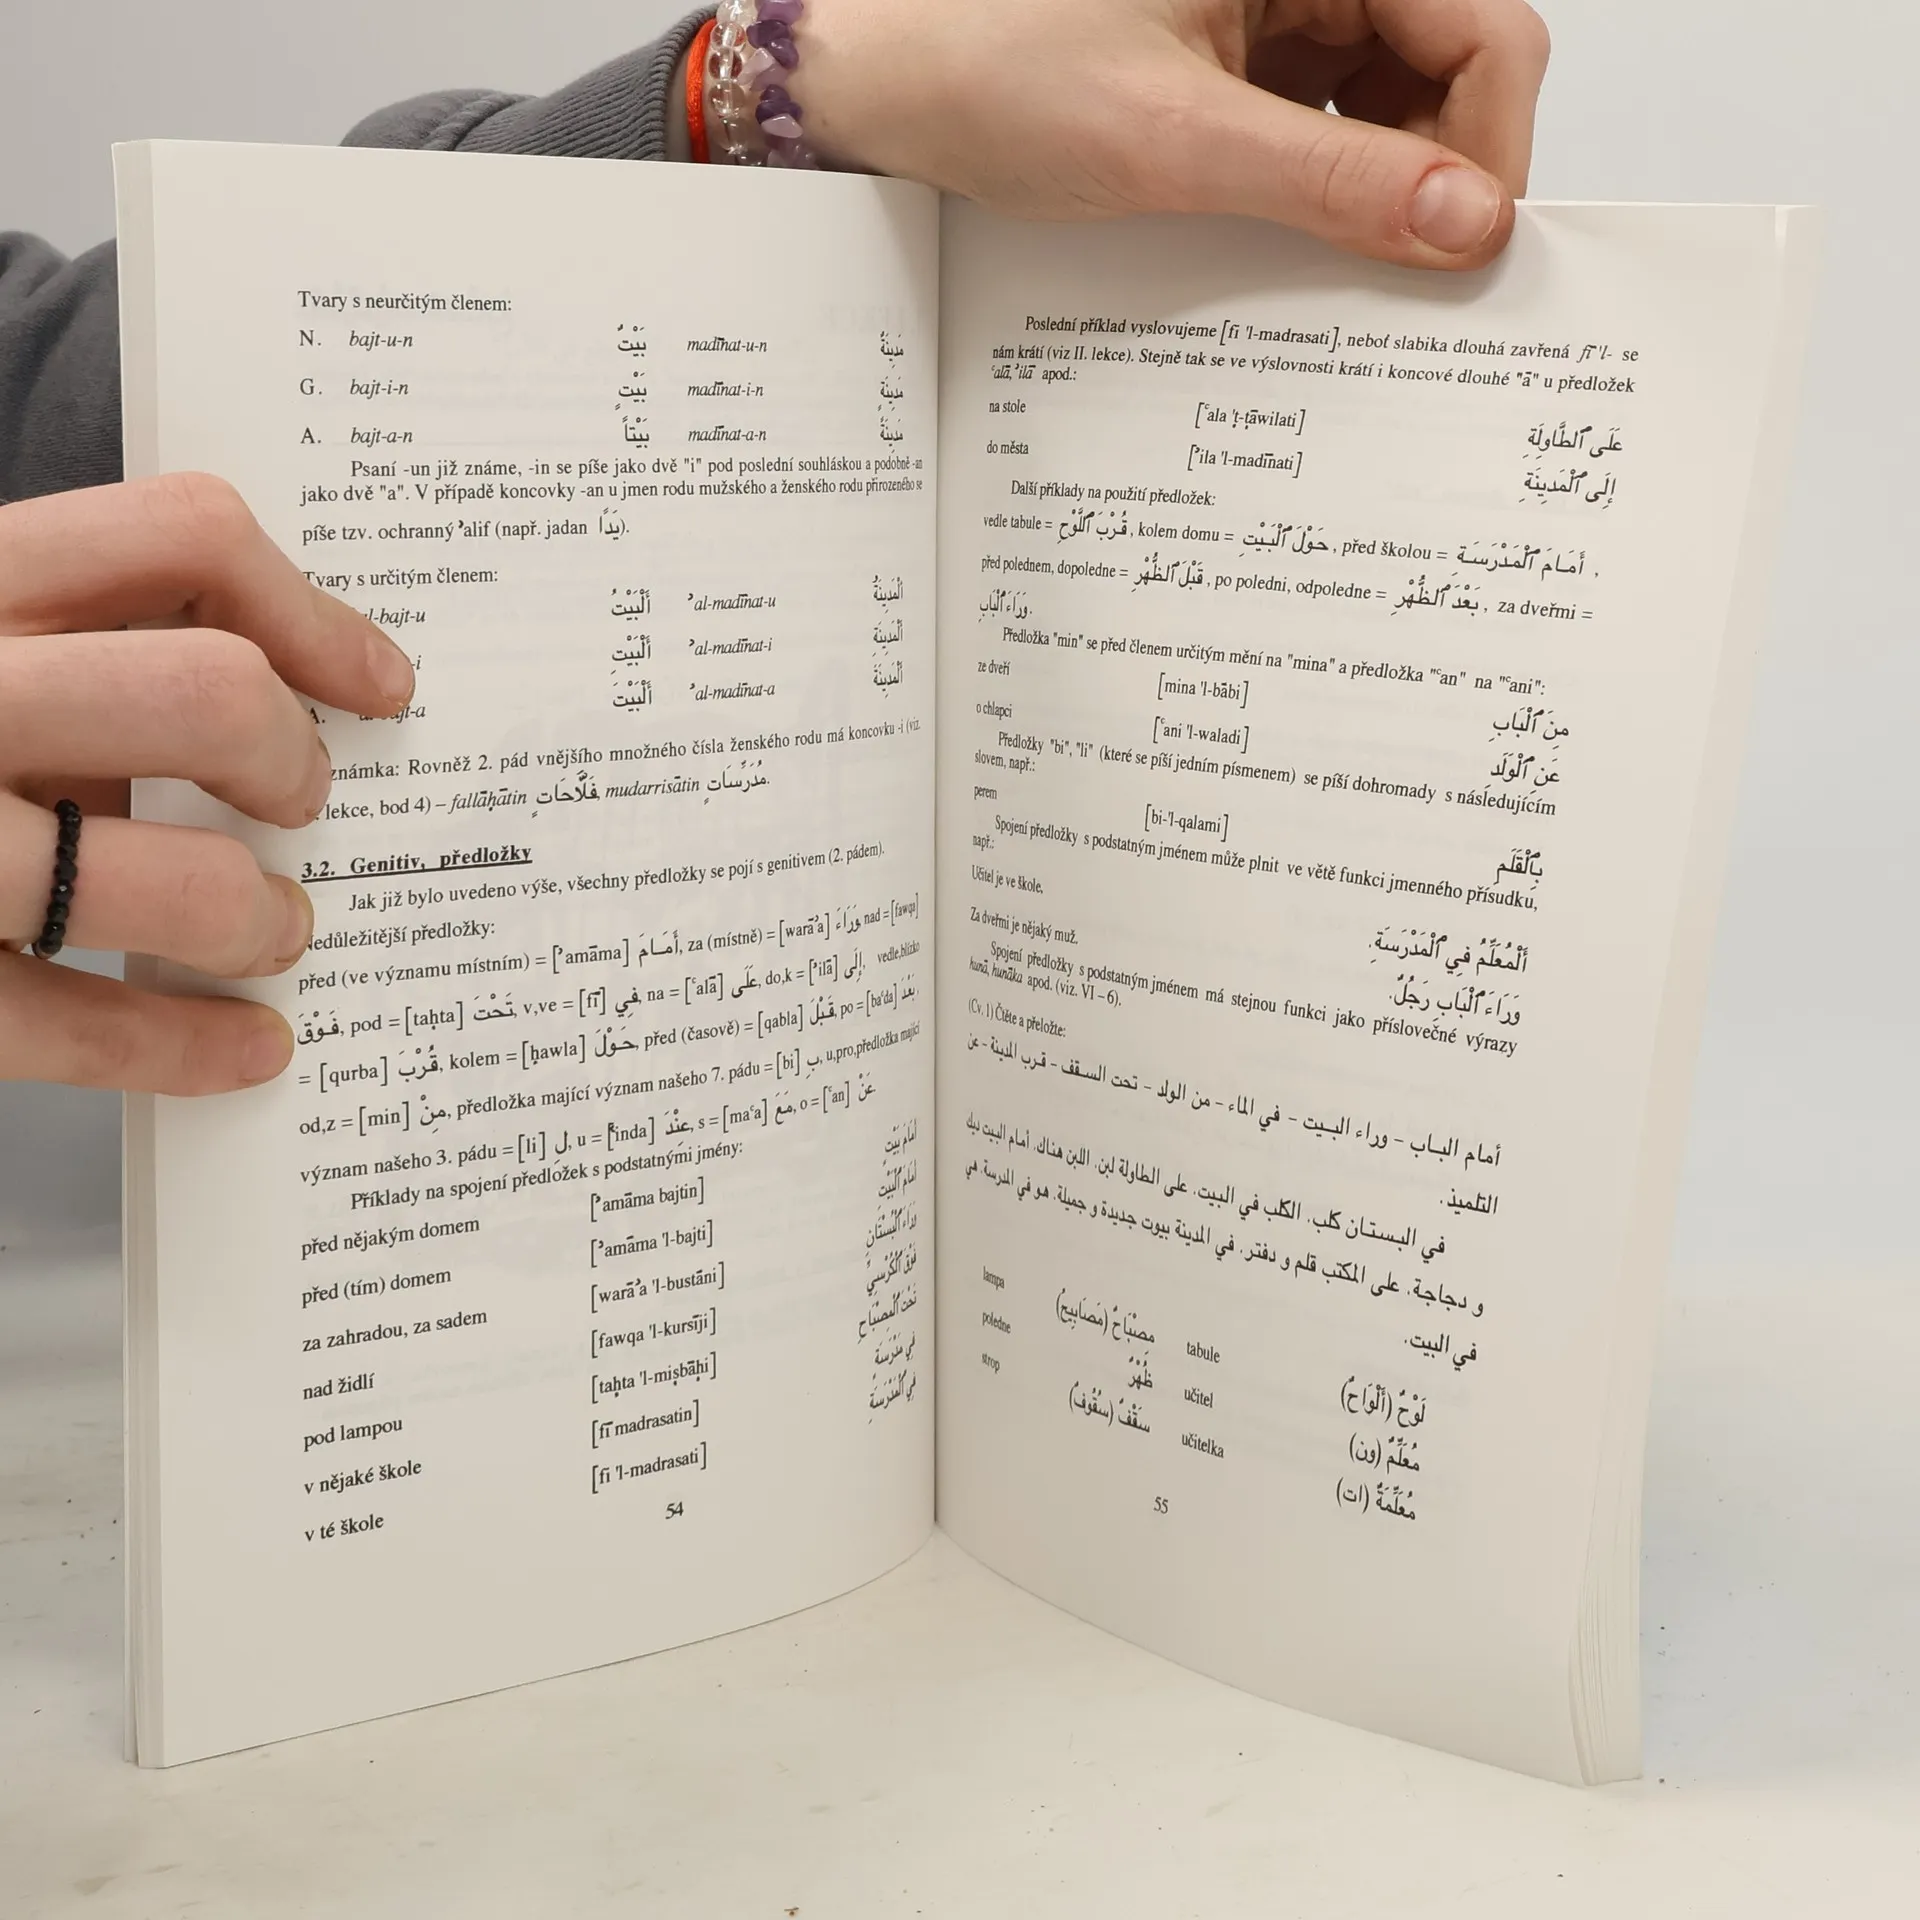 Tvary s neurčitým členem:
N. bajt-u-n بَيْتٌ madīnat-u-n مَدِينَةٌ
G. bajt-i-n بَيْتٍ madīnat-i-n مَدِينَةٍ
A. bajt-a-n بَيْتاً madīnat-a-n مَدِينَةً
Psaní -un již známe, -in se píše jako dvě "i" pod poslední souhláskou a podobně -an
jako dvě "a". V případě koncovky -an u jmen rodu mužského a ženského rodu přirozeného se
píše tzv. ochranný ʾalif (např. jadan يَدًا).
Tvary s určitým členem:
l-bajt-u أَلْبَيْتُ ʾal-madīnat-u أَلْمَدِينَةُ
-i أَلْبَيْتِ ʾal-madīnat-i أَلْمَدِينَةِ
A. al-bajt-a أَلْبَيْتَ ʾal-madīnat-a أَلْمَدِينَةَ
známka: Rovněž 2. pád vnějšího množného čísla ženského rodu má koncovku -i (viz.
lekce, bod 4) – fallāḥātin فَلَّاحَاتٍ, mudarrisātin مُدَرِّسَاتٍ.
3.2. Genitiv, předložky
Jak již bylo uvedeno výše, všechny předložky se pojí s genitivem (2. pádem).
Nedůležitější předložky:
před (ve významu místním) = [ʾamāma] أَمَامَ, za (místně) = [warāʾa] وَرَاءَ, nad = [fawqa]
فَوْقَ, pod = [taḥta] تَحْتَ, v,ve = [fī] فِي, na = [ʿalā] عَلَى, do,k = [ʾilā] إِلَى, vedle,blízko
= [qurba] قُرْبَ, kolem = [ḥawla] حَوْلَ, před (časově) = [qabla] قَبْلَ, po = [baʿda] بَعْدَ,
od,z = [min] مِنْ, předložka mající význam našeho 7. pádu = [bi] بِ, u,pro,předložka mající
význam našeho 3. pádu = [li] لِ, u = [ʿinda] عِنْدَ, s = [maʿa] مَعَ, o = [ʿan] عَنْ.
Příklady na spojení předložek s podstatnými jmény:
před nějakým domem [ʾamāma bajtin] أَمَامَ بَيْتٍ
před (tím) domem [ʾamāma 'l-bajti] أَمَامَ ٱلْبَيْتِ
za zahradou, za sadem [warāʾa 'l-bustāni] وَرَاءَ ٱلْبُسْتَانِ
nad židlí [fawqa 'l-kursīji] فَوْقَ ٱلْكُرْسِيِّ
pod lampou [taḥta 'l-miṣbāḥi] تَحْتَ ٱلْمِصْبَاحِ
v nějaké škole [fī madrasatin] فِي مَدْرَسَةٍ
v té škole [fi 'l-madrasati] فِي ٱلْمَدْرَسَةِ
54
Poslední příklad vyslovujeme [fi 'l-madrasati], neboť slabika dlouhá zavřená fī 'l- se
nám krátí (viz II. lekce). Stejně tak se ve výslovnosti krátí i koncové dlouhé "ā" u předložek
ʿalā, ʾilā apod.:
na stole [ʿala 'ṭ-ṭāwilati] عَلَى ٱلطَّاوِلَةِ
do města [ʾila 'l-madīnati] إِلَى ٱلْمَدِينَةِ
Další příklady na použití předložek:
vedle tabule = قُرْبَ ٱللَّوْحِ, kolem domu = حَوْلَ ٱلْبَيْتِ, před školou = أَمَامَ ٱلْمَدْرَسَةِ,
před polednem, dopoledne = قَبْلَ ٱلظُّهْرِ, po poledni, odpoledne = بَعْدَ ٱلظُّهْرِ, za dveřmi =
وَرَاءَ ٱلْبَابِ.
Předložka "min" se před členem určitým mění na "mina" a předložka "ʿan" na "ʿani":
ze dveří [mina 'l-bābi] مِنَ ٱلْبَابِ
o chlapci [ʿani 'l-waladi] عَنِ ٱلْوَلَدِ
Předložky "bi", "li" (které se píší jedním písmenem) se píší dohromady s následujícím
slovem, např.:
perem [bi-'l-qalami] بِٱلْقَلَمِ
Spojení předložky s podstatným jménem může plnit ve větě funkci jmenného přísudku,
např.:
Učitel je ve škole. أَلْمُعَلِّمُ فِي ٱلْمَدْرَسَةِ.
Za dveřmi je nějaký muž. وَرَاءَ ٱلْبَابِ رَجُلٌ.
Spojení předložky s podstatným jménem má stejnou funkci jako příslovečné výrazy
hunā, hunāka apod. (viz. VI – 6).
(Cv. 1) Čtěte a přeložte:
أمام الباب – وراء البيت – في الماء – من الولد – تحت السقف – قرب المدينة – عن
التلميذ.
في البستان كلب. الكلب في البيت. على الطاولة لبن. اللبن هناك. أمام البيت ديك
و دجاجة. على المكتب قلم و دفتر. في المدينة بيوت جديدة و جميلة. هو في المدرسة. هي
في البيت.
lampa مِصْبَاحٌ (مَصَابِيحُ) tabule لَوْحٌ (أَلْوَاحٌ)
poledne ظُهْرٌ učitel مُعَلِّمٌ (ون)
strop سَقْفٌ (سُقُوفٌ) učitelka مُعَلِّمَةٌ (ات)
55